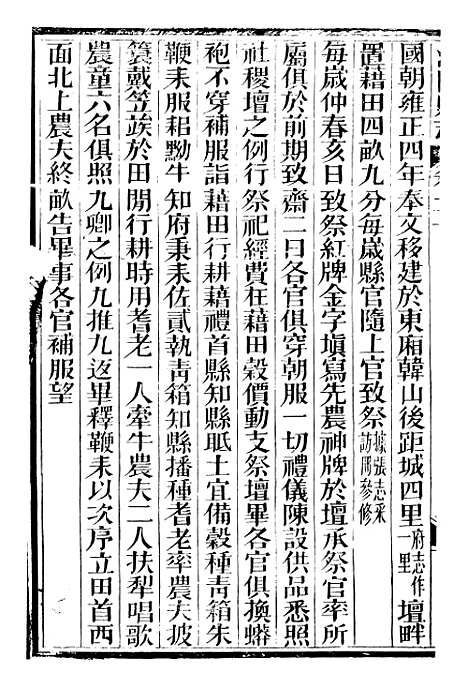 國朝雍正四年奉文移建於東廂韓山後距城四里府志作一里壇畔
置藉田四畝九分每歲縣官隨上官致祭據張志采訪冊參修
每歲仲春亥日致祭紅牌金字塡寫先農神牌於壇承祭官率所
屬俱於前期致齋二日各官俱穿朝服一切禮儀陳設供品悉照
社稷壇之例行祭祀經費在藉田穀價動支祭壇畢各官俱換蟒
袍不穿補服詣藉田行耕藉禮首縣知縣眡土宜備穀種靑箱朱
鞭耒服耜黝牛知府秉耒佐貳執靑箱知縣播種耆老率農夫披
簑戴笠蓑於田閒行耕時用耆老一人牽牛農夫二人扶犁唱歌
農童六名俱照九卿之例九推九返畢釋鞭耒以次序立田首西
面北上農夫終畝告畢事各官補服望